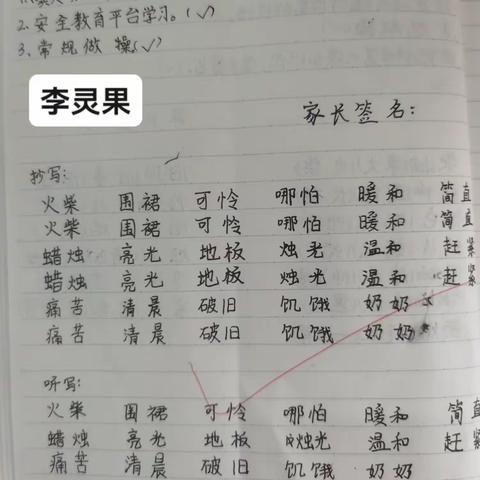 2.安全教育平台学习。(✓)
3.常规做操(✓)
李灵果
家长签名:
抄写:
火柴 围裙 可怜 哪怕 暖和 简直
火柴 围裙 可怜 哪怕 暖和 简直
蜡烛 亮光 地板 烛光 温和 赶紧
蜡烛 亮光 地板 烛光 温和 赶紧
痛苦 清晨 破旧 饥饿 奶奶
痛苦 清晨 破旧 饥饿 奶奶
听写:
火柴 围裙 可怜 哪怕 暖和 简直
蜡烛 亮光 地板 烛光 温和 赶紧
痛苦 清晨 破旧 饥饿 奶奶